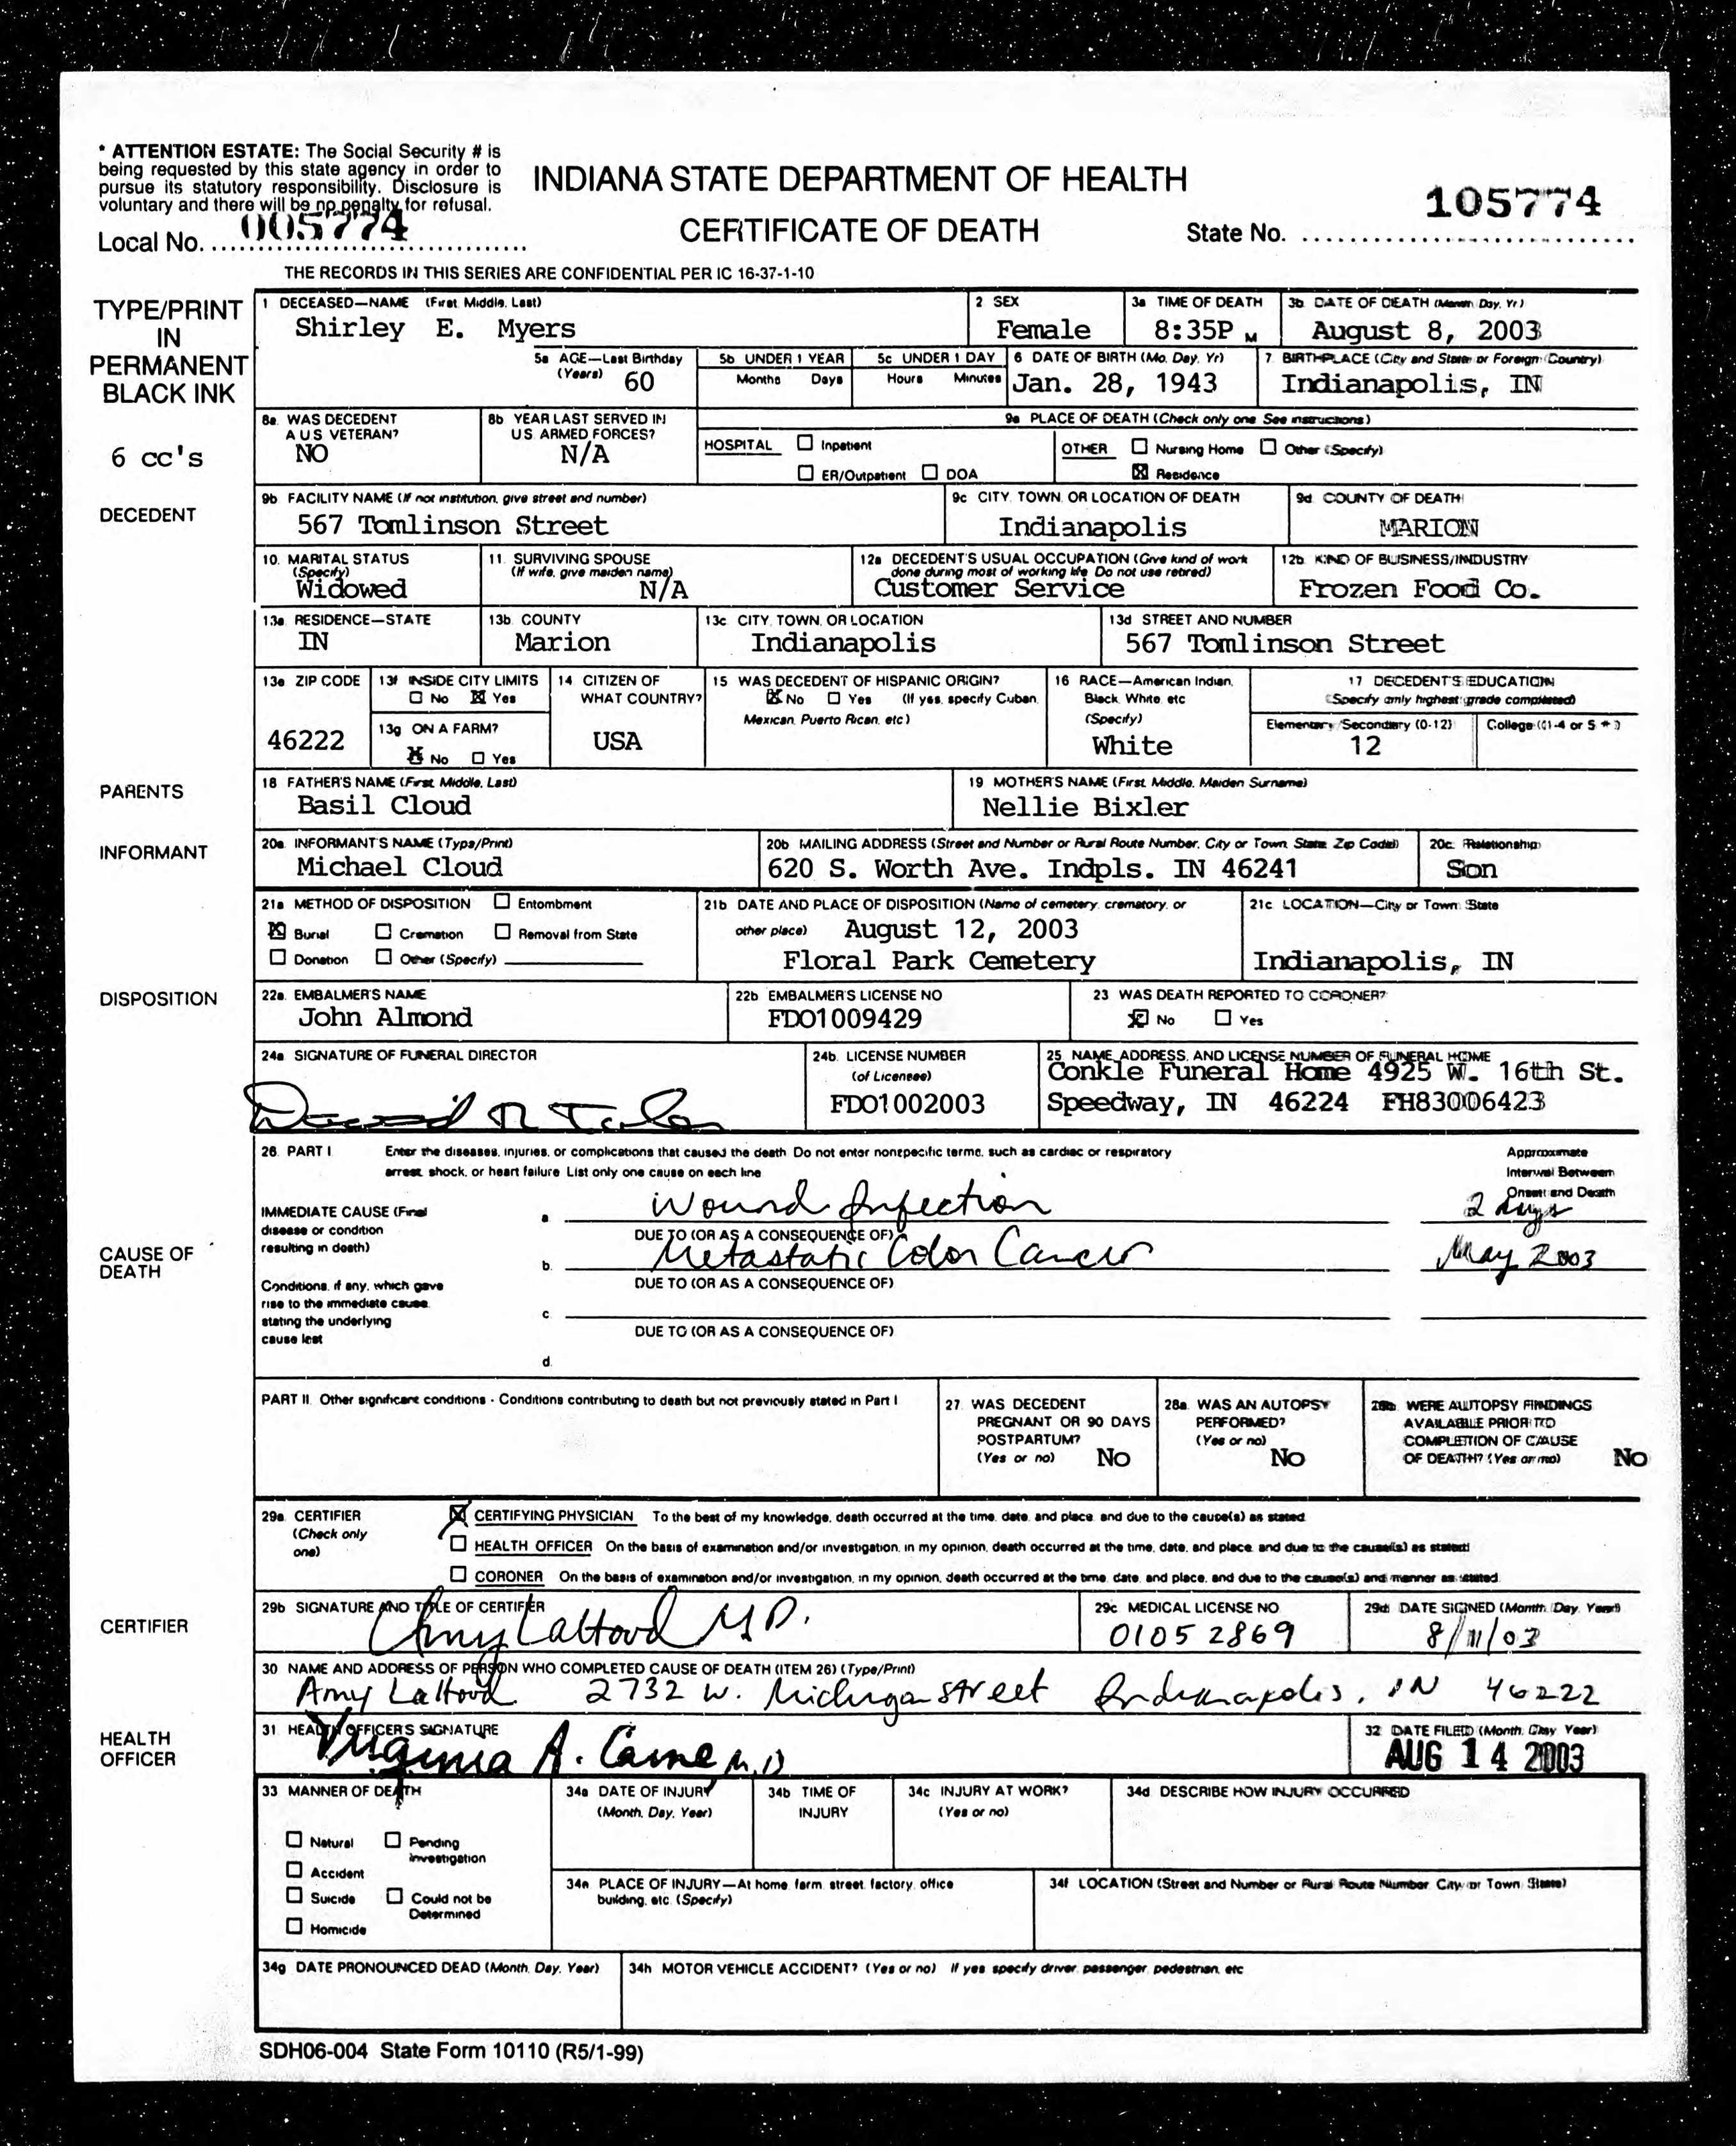 * ATTENTION ESTATE: The Social Security # is
being requested by this state agency in order to
pursue its statutory responsibility. Disclosure is
voluntary and there will be no penalty for refusal.
INDIANA STATE DEPARTMENT OF HEALTH
CERTIFICATE OF DEATH
Local No. 005774
State No. 105774
THE RECORDS IN THIS SERIES ARE CONFIDENTIAL PER IC 16-37-1-10
TYPE/PRINT
IN
PERMANENT
BLACK INK
6 cc's
1 DECEASED—NAME (First, Middle, Last)
Shirley E. Myers
2 SEX
Female
3a TIME OF DEATH
8:35P M
3b DATE OF DEATH (Month, Day, Yr)
August 8, 2003
5a AGE—Last Birthday
(Years) 60
5b UNDER 1 YEAR
Months Days
5c UNDER 1 DAY
Hours Minutes
6 DATE OF BIRTH (Mo. Day, Yr)
Jan. 28, 1943
7 BIRTHPLACE (City and State or Foreign Country)
Indianapolis, IN
8a. WAS DECEDENT
A U S VETERAN?
NO
8b YEAR LAST SERVED IN
U.S. ARMED FORCES?
N/A
9a PLACE OF DEATH (Check only one See instructions)
HOSPITAL ☐ Inpatient
☐ ER/Outpatient ☐ DOA
OTHER ☐ Nursing Home ☐ Other (Specify)
☒ Residence
DECEDENT
9b FACILITY NAME (If not institution, give street and number)
567 Tomlinson Street
9c CITY, TOWN, OR LOCATION OF DEATH
Indianapolis
9d COUNTY OF DEATH
MARION
10. MARITAL STATUS
(Specify)
Widowed
11. SURVIVING SPOUSE
(If wife, give maiden name)
N/A
12a DECEDENT'S USUAL OCCUPATION (Give kind of work
done during most of working life Do not use retired)
Customer Service
12b KIND OF BUSINESS/INDUSTRY
Frozen Food Co.
13a. RESIDENCE—STATE
IN
13b. COUNTY
Marion
13c CITY, TOWN, OR LOCATION
Indianapolis
13d STREET AND NUMBER
567 Tomlinson Street
13e ZIP CODE
46222
13f INSIDE CITY LIMITS
☐ No ☒ Yes
13g ON A FARM?
☒ No ☐ Yes
14 CITIZEN OF
WHAT COUNTRY?
USA
15 WAS DECEDENT OF HISPANIC ORIGIN?
☒ No ☐ Yes (If yes, specify Cuban,
Mexican, Puerto Rican, etc)
16 RACE—American Indian,
Black, White, etc
(Specify)
White
17 DECEDENT'S EDUCATION
(Specify only highest grade completed)
Elementary/Secondary (0-12)
12
College (1-4 or 5 +)
PARENTS
18 FATHER'S NAME (First, Middle, Last)
Basil Cloud
19 MOTHER'S NAME (First, Middle, Maiden Surname)
Nellie Bixler
INFORMANT
20a. INFORMANT'S NAME (Type/Print)
Michael Cloud
20b MAILING ADDRESS (Street and Number or Rural Route Number, City or Town, State, Zip Code)
620 S. Worth Ave. Indpls. IN 46241
20c. Relationship
Son
21a METHOD OF DISPOSITION ☐ Entombment
☒ Burial ☐ Cremation ☐ Removal from State
☐ Donation ☐ Other (Specify)
21b DATE AND PLACE OF DISPOSITION (Name of cemetery, crematory, or
other place) August 12, 2003
Floral Park Cemetery
21c LOCATION—City or Town, State
Indianapolis, IN
DISPOSITION
22a. EMBALMER'S NAME
John Almond
22b EMBALMER'S LICENSE NO
FDO1009429
23 WAS DEATH REPORTED TO CORONER?
☒ No ☐ Yes
24a SIGNATURE OF FUNERAL DIRECTOR
24b. LICENSE NUMBER
(of Licensee)
FDO1002003
25 NAME, ADDRESS, AND LICENSE NUMBER OF FUNERAL HOME
Conkle Funeral Home 4925 W. 16th St.
Speedway, IN 46224 FH83006423
26. PART I Enter the diseases, injuries, or complications that caused the death Do not enter nonspecific terms, such as cardiac or respiratory
arrest, shock, or heart failure List only one cause on each line
Approximate
Interval Between
Onset and Death
CAUSE OF
DEATH
IMMEDIATE CAUSE (Final
disease or condition
resulting in death)
a Wound Infection 2 days
DUE TO (OR AS A CONSEQUENCE OF)
b. Metastatic Colon Cancer May 2003
DUE TO (OR AS A CONSEQUENCE OF)
Conditions, if any, which gave
rise to the immediate cause,
stating the underlying
cause last
c
DUE TO (OR AS A CONSEQUENCE OF)
d.
PART II. Other significant conditions - Conditions contributing to death but not previously stated in Part I
27. WAS DECEDENT
PREGNANT OR 90 DAYS
POSTPARTUM?
(Yes or no) No
28a. WAS AN AUTOPSY
PERFORMED?
(Yes or no) No
28b. WERE AUTOPSY FINDINGS
AVAILABLE PRIOR TO
COMPLETION OF CAUSE
OF DEATH? (Yes or no) No
29a. CERTIFIER
(Check only
one)
☒ CERTIFYING PHYSICIAN To the best of my knowledge, death occurred at the time, date, and place, and due to the cause(s) as stated.
☐ HEALTH OFFICER On the basis of examination and/or investigation, in my opinion, death occurred at the time, date, and place, and due to the cause(s) as stated
☐ CORONER On the basis of examination and/or investigation, in my opinion, death occurred at the time, date, and place, and due to the cause(s) and manner as stated.
CERTIFIER
29b SIGNATURE AND TITLE OF CERTIFIER
Amy LaHood MD.
29c MEDICAL LICENSE NO
01052869
29d DATE SIGNED (Month, Day, Year)
8/11/03
30 NAME AND ADDRESS OF PERSON WHO COMPLETED CAUSE OF DEATH (ITEM 26) (Type/Print)
Amy LaHood 2732 W. Michigan Street Indianapolis, IN 46222
HEALTH
OFFICER
31 HEALTH OFFICER'S SIGNATURE
Virginia A. Caine M.D
32 DATE FILED (Month, Day, Year)
AUG 14 2003
33 MANNER OF DEATH
☐ Natural ☐ Pending
Investigation
☐ Accident
☐ Suicide ☐ Could not be
Determined
☐ Homicide
34a DATE OF INJURY
(Month, Day, Year)
34b TIME OF
INJURY
34c INJURY AT WORK?
(Yes or no)
34d DESCRIBE HOW INJURY OCCURRED
34e PLACE OF INJURY—At home, farm, street, factory, office
building, etc. (Specify)
34f LOCATION (Street and Number or Rural Route Number, City or Town, State)
34g DATE PRONOUNCED DEAD (Month, Day, Year)
34h MOTOR VEHICLE ACCIDENT? (Yes or no) If yes specify driver, passenger, pedestrian, etc
SDH06-004 State Form 10110 (R5/1-99)